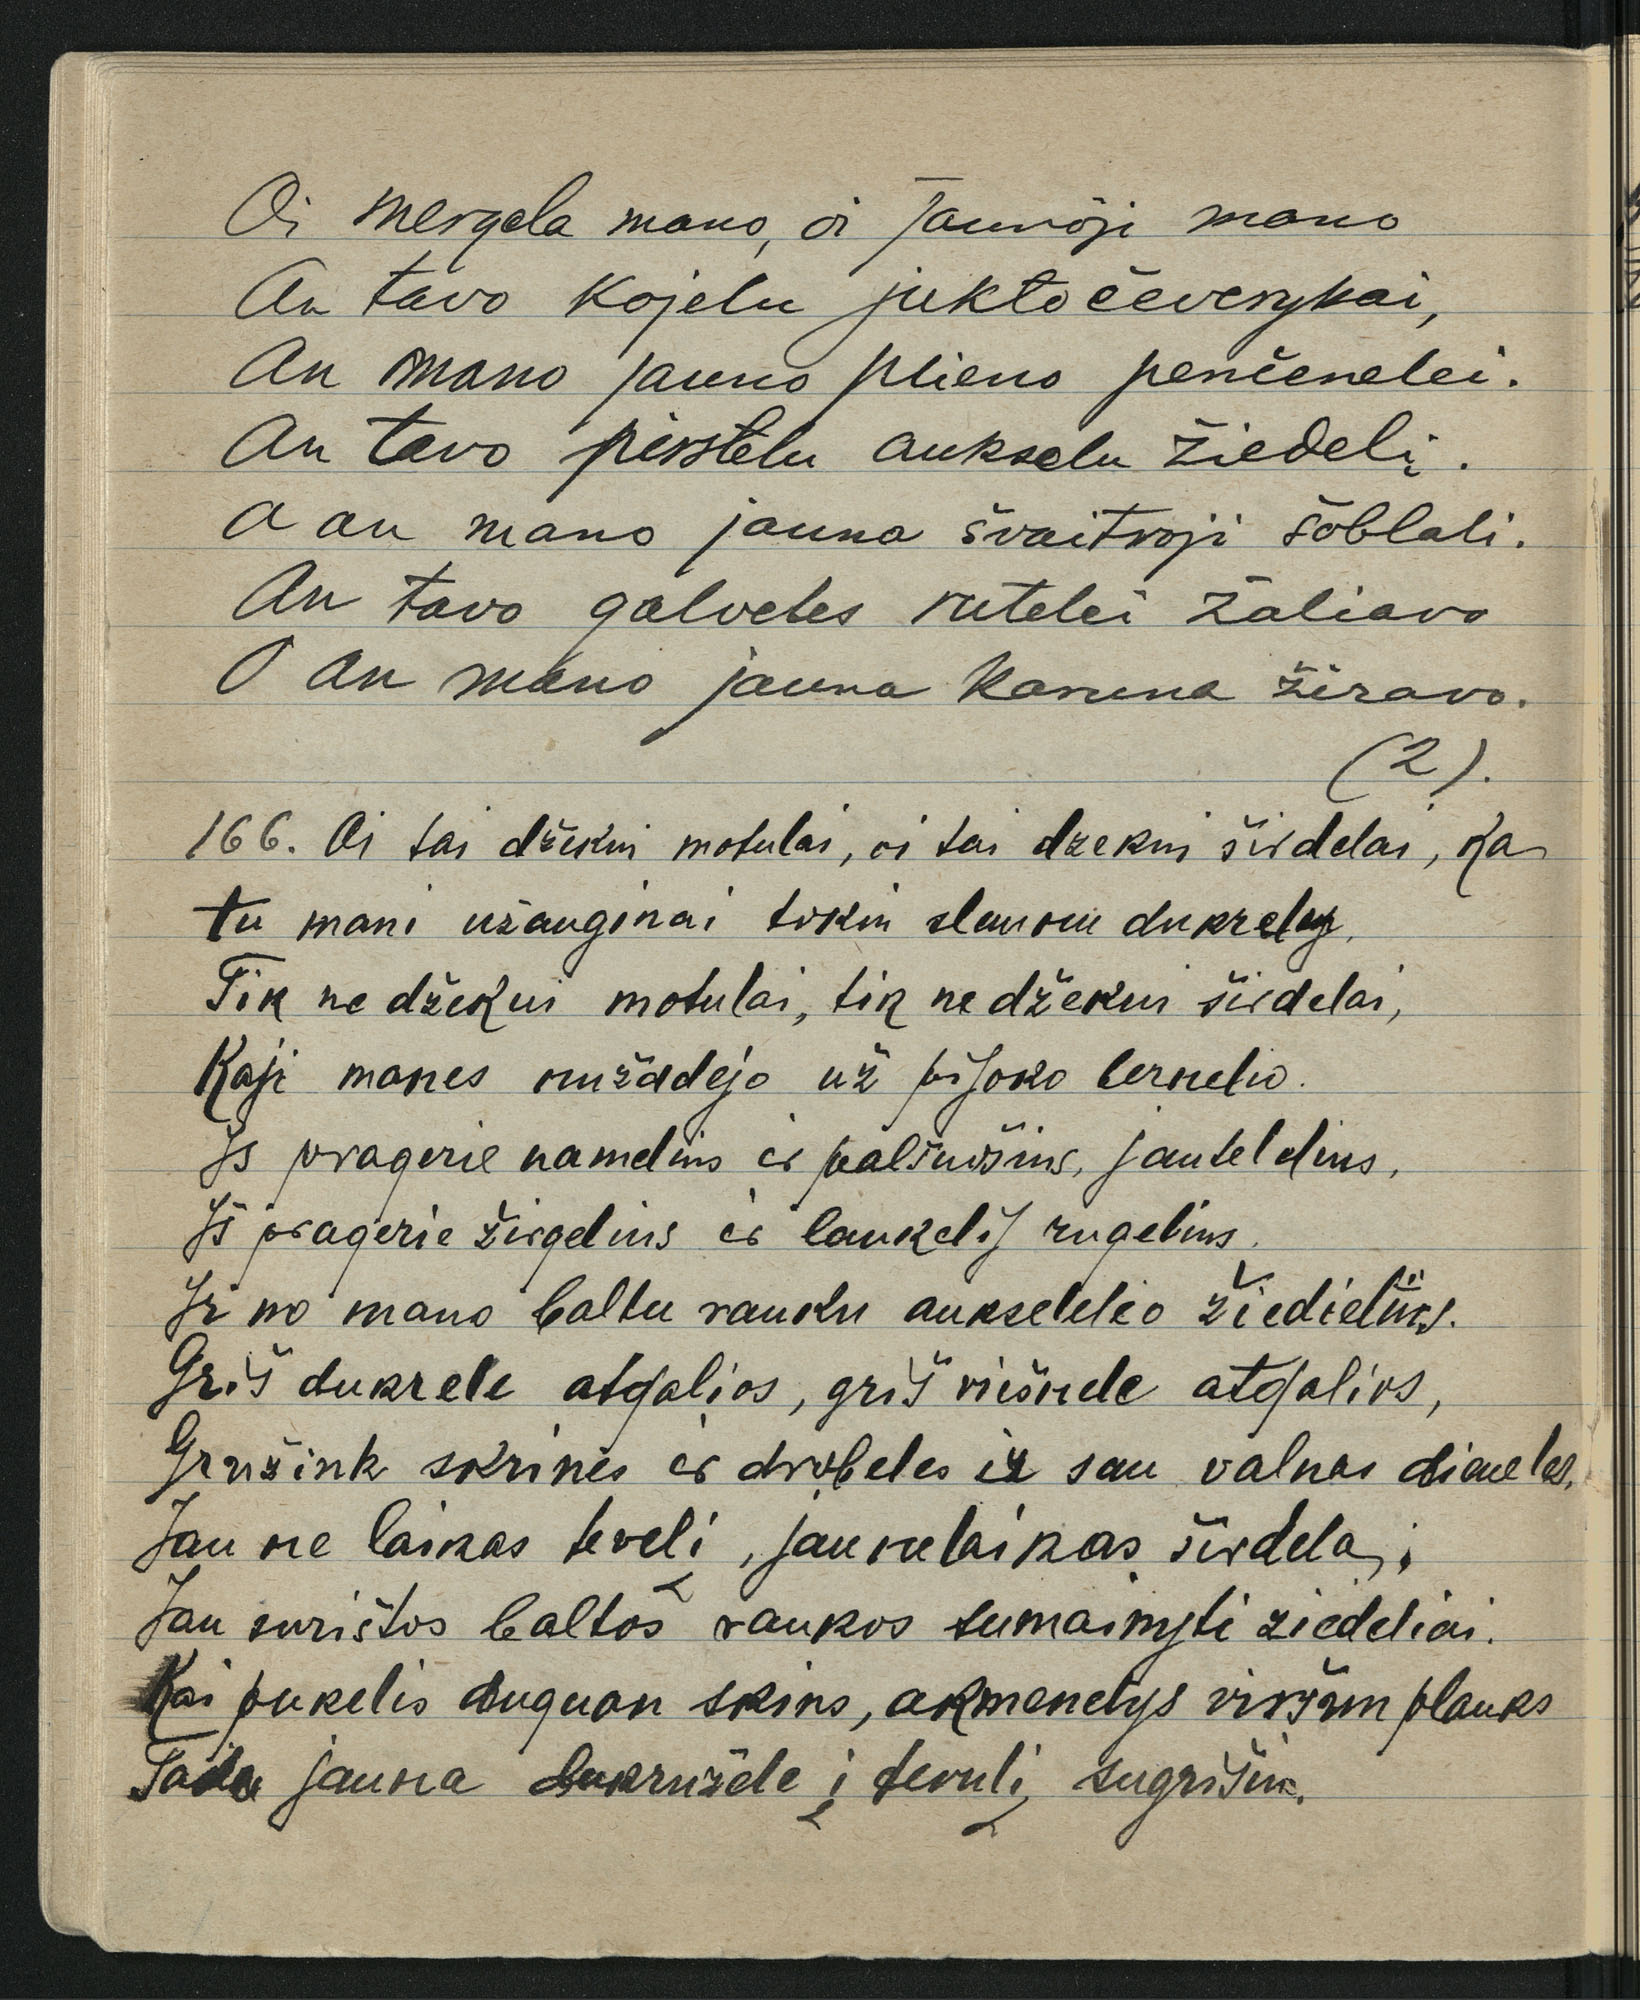 Oi mergela mano, oi jaunoji mano
An tavo kojelu jukto čeverykai,
An mano jauno plieno penčenelei.
An tavo pirstelu aukselu žiedelį.
O an mano jauna švaitroji šoblali.
An tavo galvetes rutelei žaliavo
O an mano jauna karuna žiravo.
(2).
166. Oi tai džekui motulai, oi tai dzekui širdelai, ka
tu mani užauginai tokiu slauniu dukrely.
Tik ne džekui motulai, tik ne džekui širdelai,
Kaji manes nužadėjo už pijoko bernelio.
Js pragerie namelius ir palšusius, jauteldius,
Jš pragerie žirgelius ir laukelij rugelius.
Jr no mano baltu ranku aukselelio žiedielius.
Griš dukrele atgalios, griš višnele atgalios,
Gružink skrines ir drobeles ir sau valnas dieneles.
Jau ne laikas teveli, jau nelaikas širdela,
Jau surištos baltos rankos sumainyti ziedeliai.
Kai pukelis dugnan skins, akmenelys viršun plauks
Tada jauna dukružele į tevulį sugrišiu.